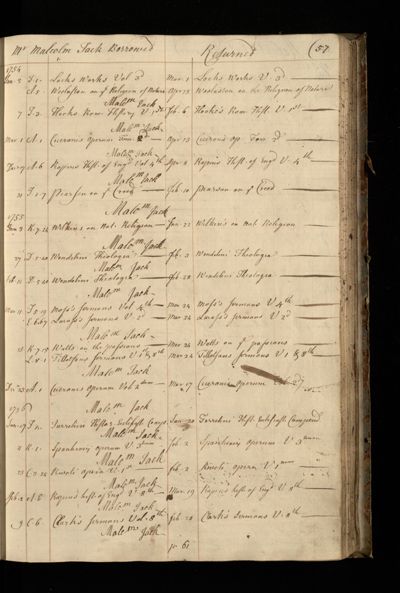 Mr Malcolm Jack Borrowed Returned (57
1754
Jan. 3 I. 1. Locks Works Vol 3d Mar. 1 Locks Works V. 3d
A. 1 Wollaston on ye Religion of Nature Apr 13 Wollaston on the Religion of Nature
Malcm Jack
7 I. 2. Hooks Rom History V. 1st Feb. 6 Hooks's Rom Hist. V 1st
Malcm Jack
Mar 1 A. 1 Ciceronis Operum Apr 13 Ciceronis Op
Malcm Jack
A. 6 Rapin's Hist. of Engd Vol 4th Apr 2 Rapin's Hist of Engd V. 4th
Malcm Jack
I. 7 Pearson on ye Creed Feb 10 Pearson on ye Creed
Malcm Jack
1755
Jan 3 K. 7. 24 Wilkins on Nat. Religion Jan 22 Wilkins on Nat Religion
Malcm Jack
27 I. 5. 20 Wendelini Theologia Feb. 3 Wendelini Theologia
Malcm Jack
D. 5. 20 Wendelini Theologia Feb 28 Wendelini Theologia
Malcm Jack
Mar 11 I. 5. 19 Moss's Sermons Vol. 4th Mar 24 Moss's Sermons V 4th
Sermons V 2d Mar 24 Sermons V 2d
Malcm Jack
K. 7. 15 Watts on the passions Mar 24 Watts on ye passions
Tillotsons Sermons V 1 & 8th Mar 24 Tillotsons Sermons V 1 & 8th
Malcm Jack
A. 1 Ciceronis Operum Vol 2dum Mar. 17 Ciceronis Operum
1756 Malcm Jack
Jan. 17 I. Turretini Histor Ecclesiast Comp. Jan Turretini Hist. Ecclesiast Compend
Malcm Jack
K. 1. Spanhemij Operum V 3 Feb 2 Spanhemij Operum V 3
Malcm Jack
23 C. Opera V. 1 Feb. 2 Opera V. 1
Malcm Jack
Feb 2 A. 6 Rapin's Hist of Engd V. 8th Mar. 19 Rapin's Hist of Engd V 8th
Malcm Jack
9 C. 6. Clark's Sermons Vol. 8th Feb 28 Clark's Sermons V. 8th
Malcm Jack
p. 61